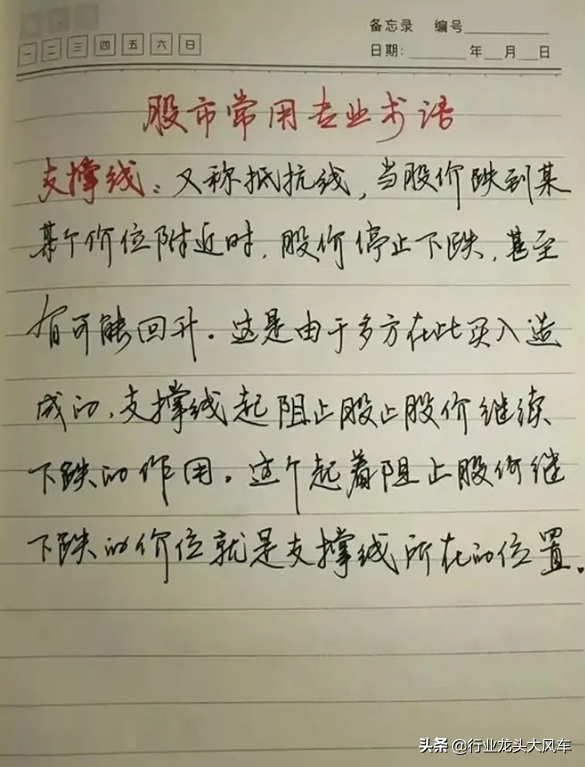 备忘录 编号
一 二 三 四 五 六 日
日期： 年 月 日
股市常用专业术语
支撑线：又称抵抗线，当股价跌到某
某个价位附近时，股价停止下跌，甚至
有可能回升。这是由于多方在此买入造
成的，支撑线起阻止股止股价继续
下跌的作用。这个起着阻止股价继
下跌的价位就是支撑线所在的位置。
头条 @行业龙头大风车